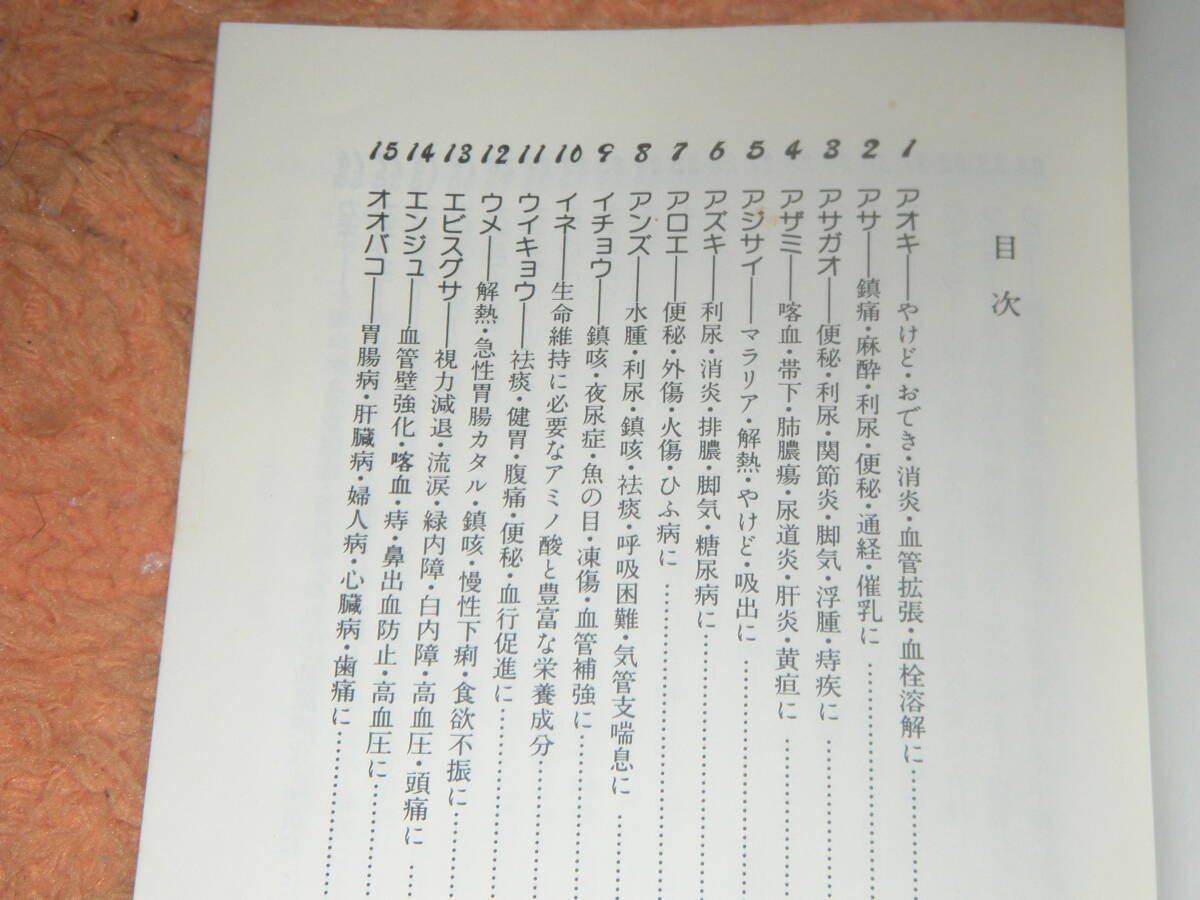 目次
1 アオキ――やけど・おでき・消炎・血管拡張・血栓溶解に……………
2 アサ――鎮痛・麻酔・利尿・便秘・通経・催乳に……………
3 アサガオ――便秘・利尿・関節炎・脚気・浮腫・痔疾に……………
4 アザミ――喀血・帯下・肺膿瘍・尿道炎・肝炎・黄疸に……………
5 アジサイ――マラリア・解熱・やけど・吸出に……………
6 アズキ――利尿・消炎・排膿・脚気・糖尿病に……………
7 アロエ――便秘・外傷・火傷・ひふ病に……………
8 アンズ――水腫・利尿・鎮咳・祛痰・呼吸困難・気管支喘息に……………
9 イチョウ――鎮咳・夜尿症・魚の目・凍傷・血管補強に……………
10 イネ――生命維持に必要なアミノ酸と豊富な栄養成分……………
11 ウイキョウ――祛痰・健胃・腹痛・便秘・血行促進に……………
12 ウメ――解熱・急性胃腸カタル・鎮咳・慢性下痢・食欲不振に……………
13 エビスグサ――視力減退・流涙・緑内障・白内障・高血圧・頭痛に……………
14 エンジュ――血管壁強化・喀血・痔・鼻出血防止・高血圧に……………
15 オオバコ――胃腸病・肝臓病・婦人病・心臓病・歯痛に……………